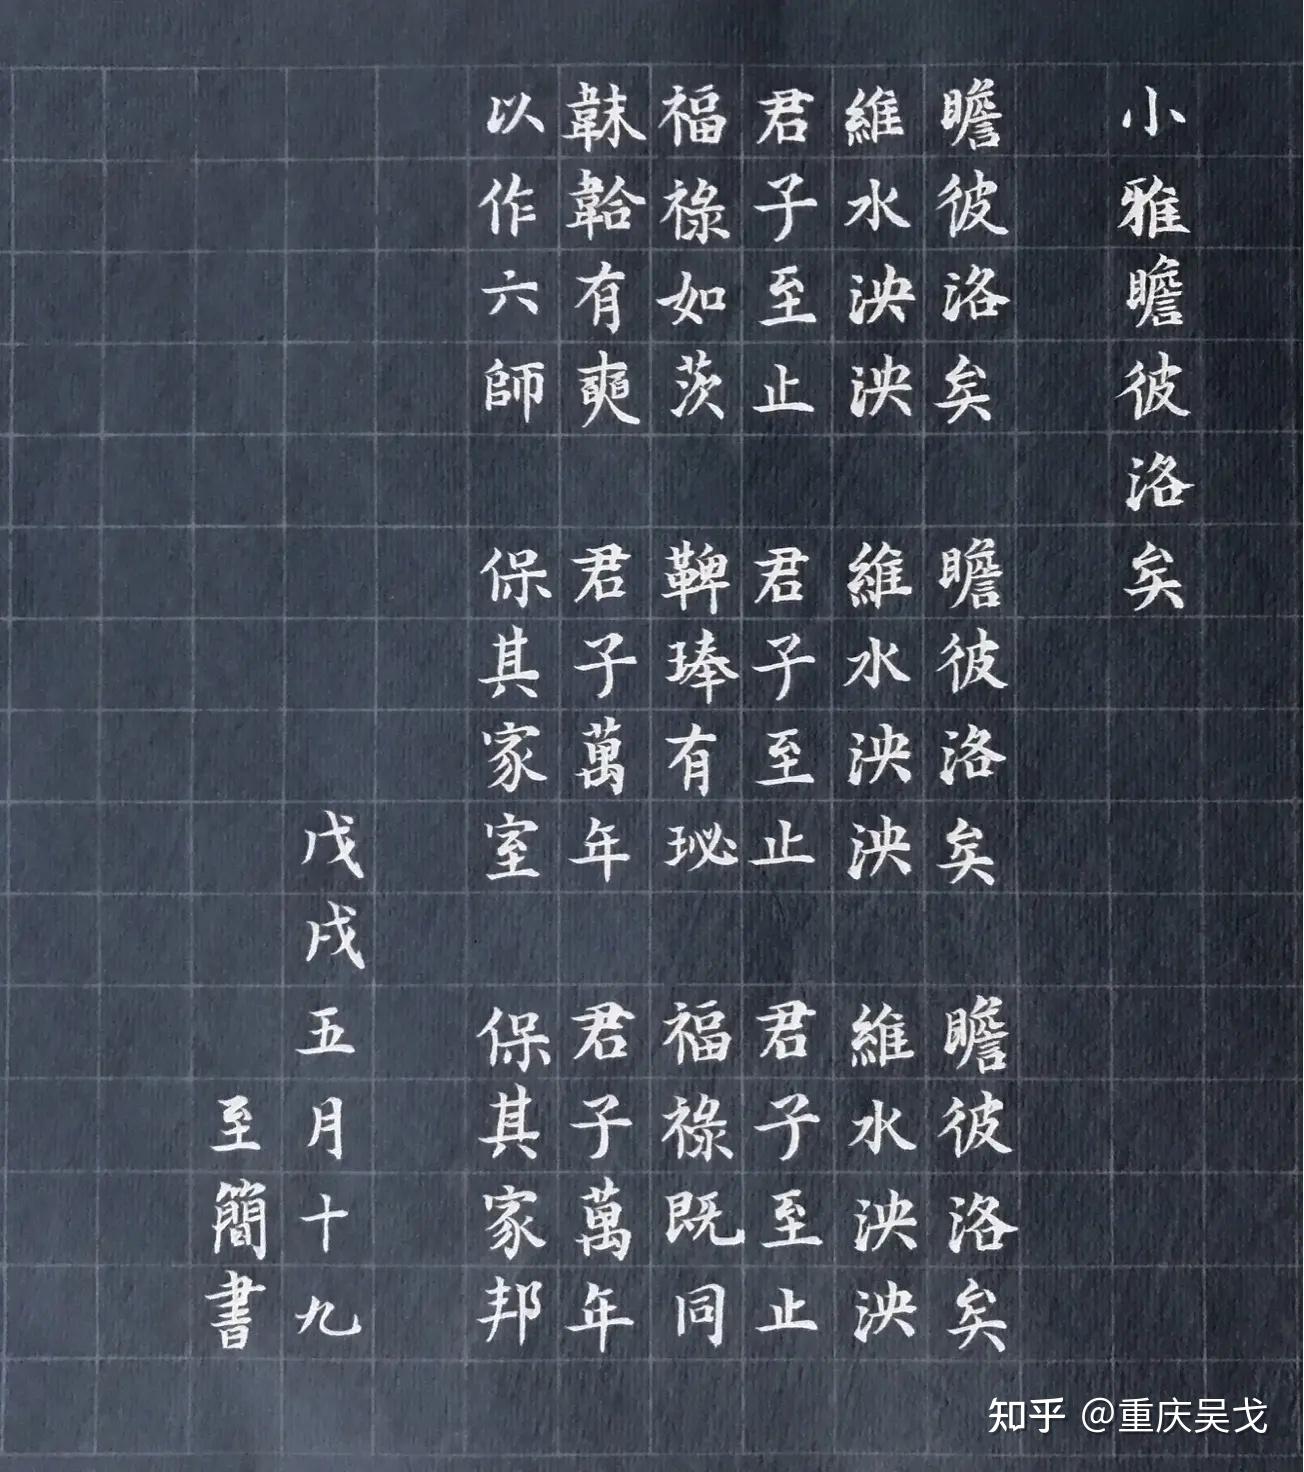 小雅瞻彼洛矣
瞻彼洛矣
維水泱泱
君子至止
福祿如茨
韎韐有奭
以作六師
瞻彼洛矣
維水泱泱
君子至止
鞞琫有珌
君子萬年
保其家室
瞻彼洛矣
維水泱泱
君子至止
福祿既同
君子萬年
保其家邦
戊戌五月十九
至簡書
知乎 @重庆吴戈